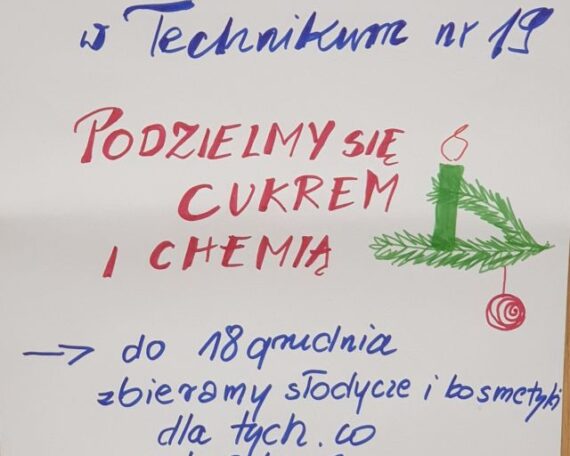 w Technikum nr 19
PODZIELMY SIĘ
CUKREM
I CHEMIĄ
→ do 18 grudnia
zbieramy słodycze i kosmetyki
dla tych.co